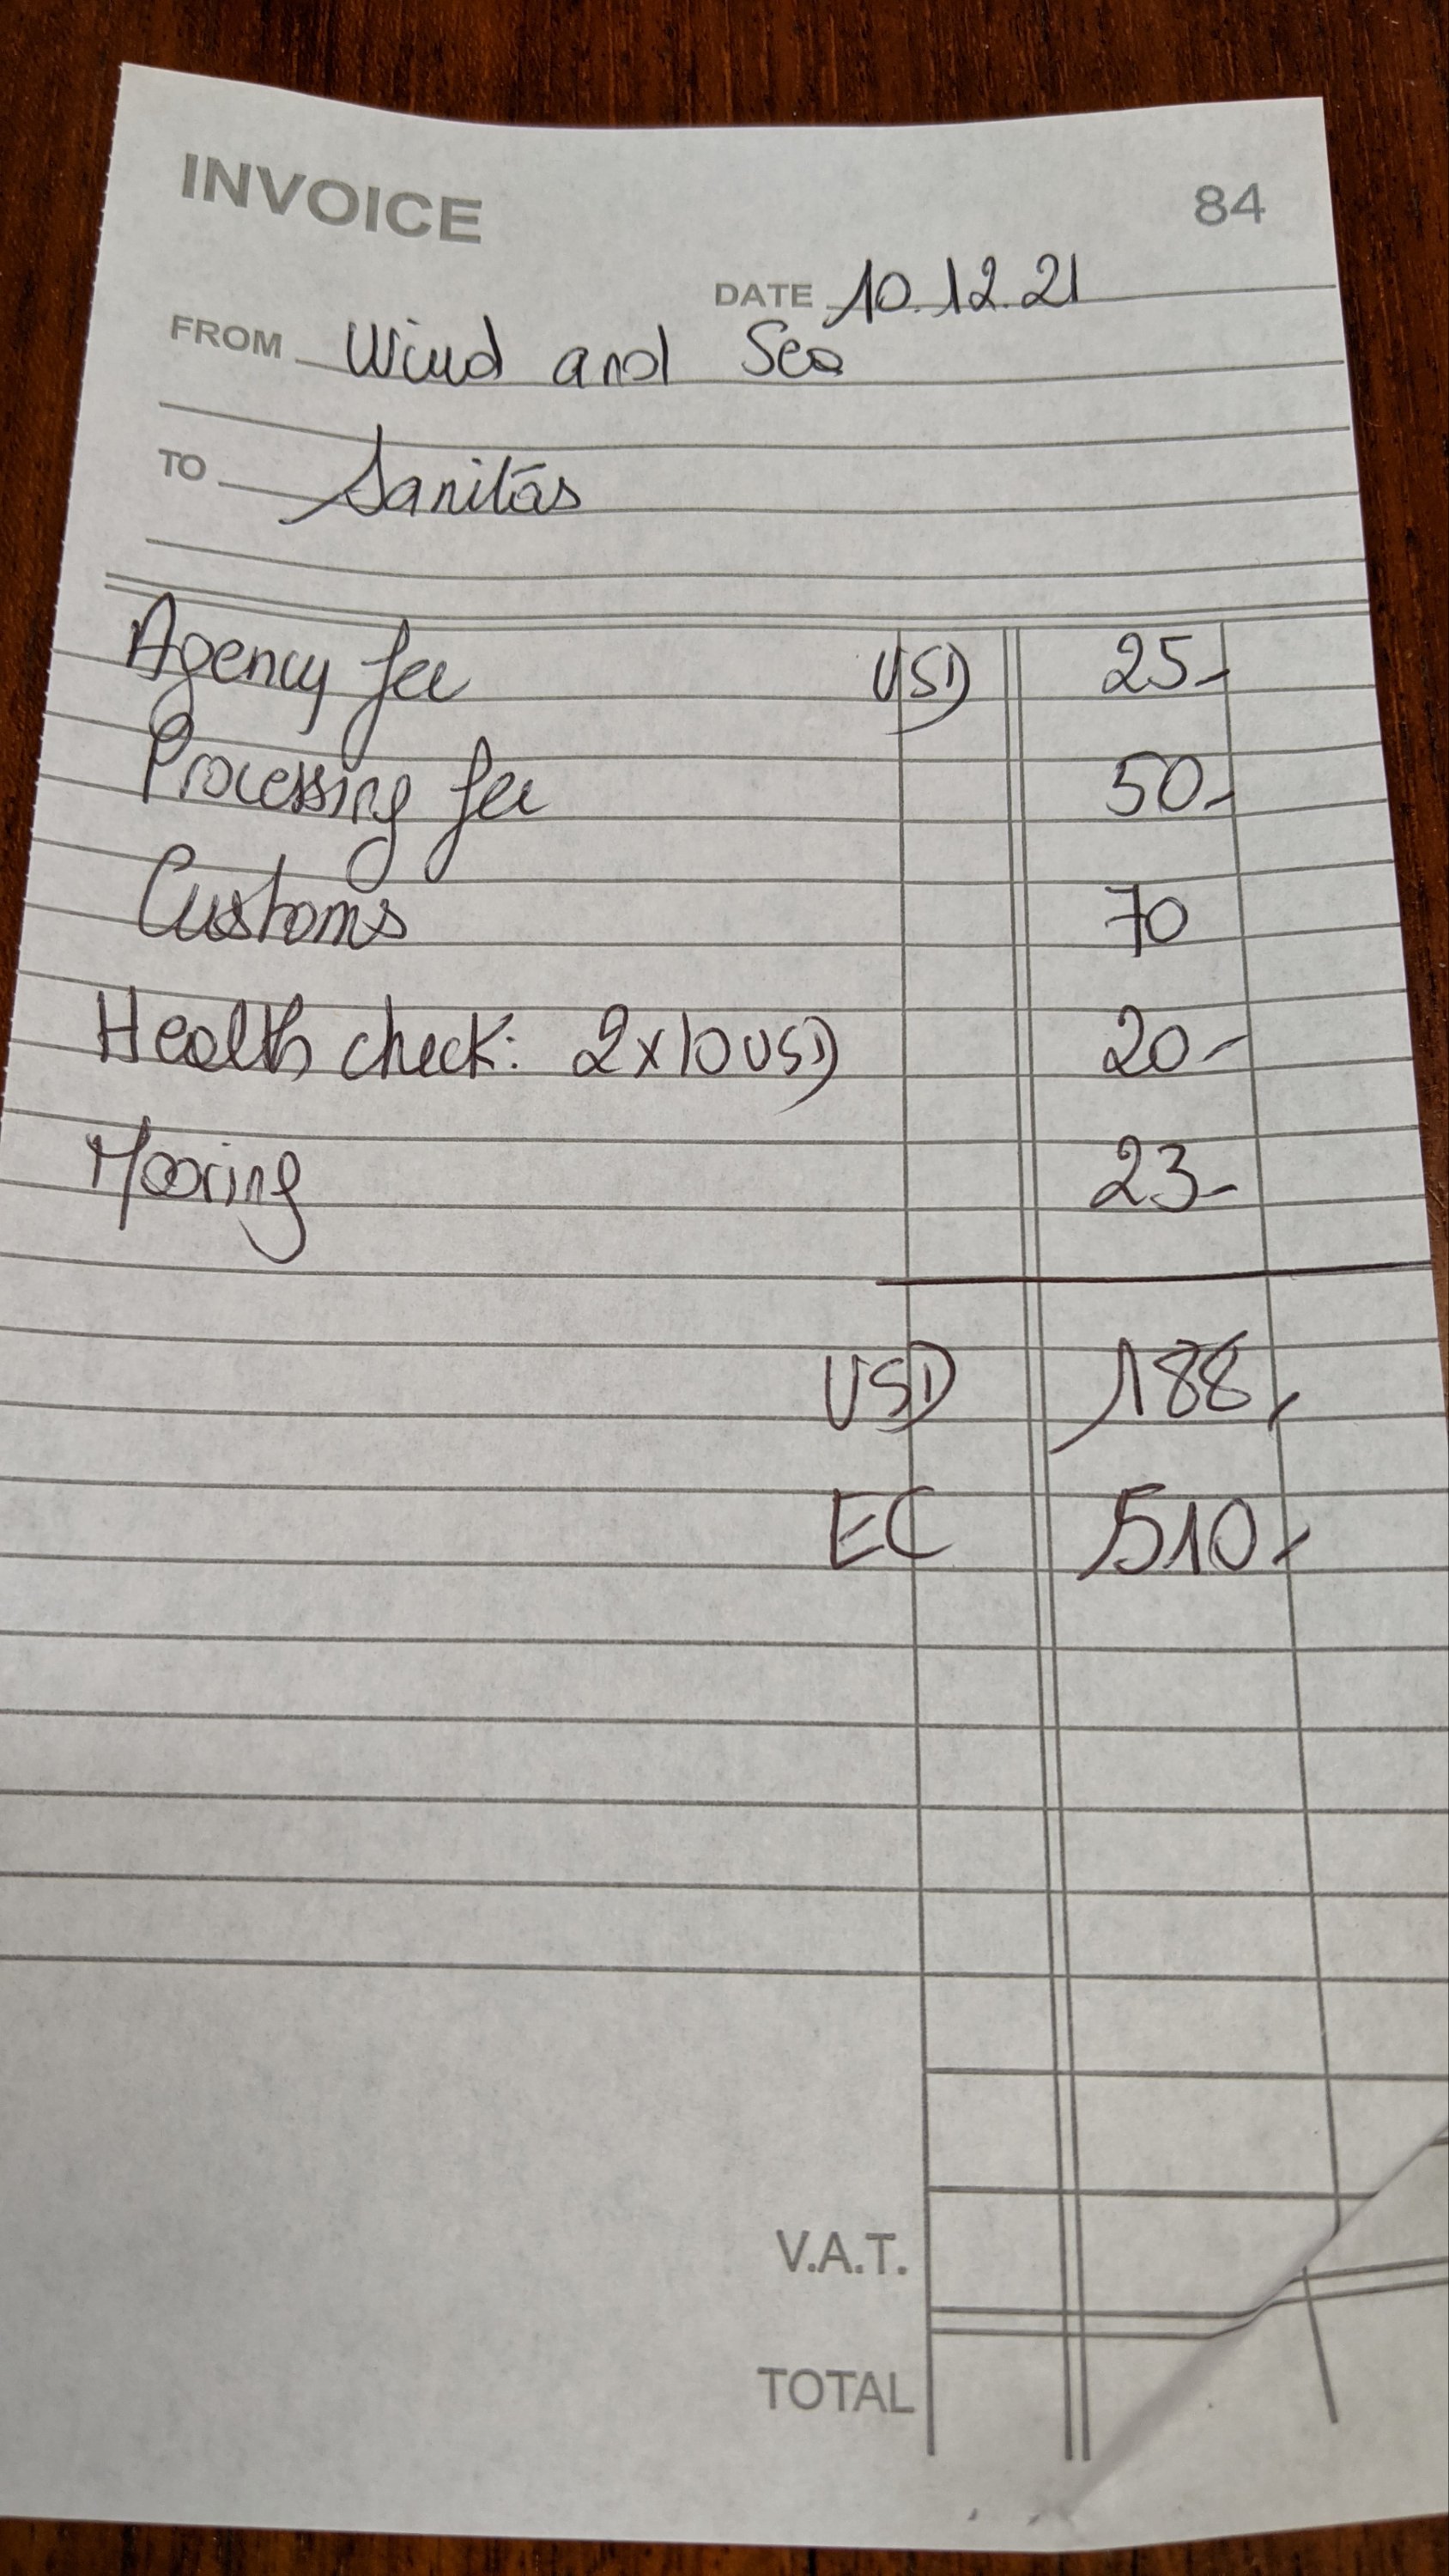 INVOICE 84
DATE 10.12.21
FROM Wind and Sea
TO Sanitas
Agency fee USD 25-
Processing fee 50-
Customs 70
Health check: 2x10 USD 20-
Mooring 23-
USD 188,-
EC 510,-
V.A.T.
TOTAL